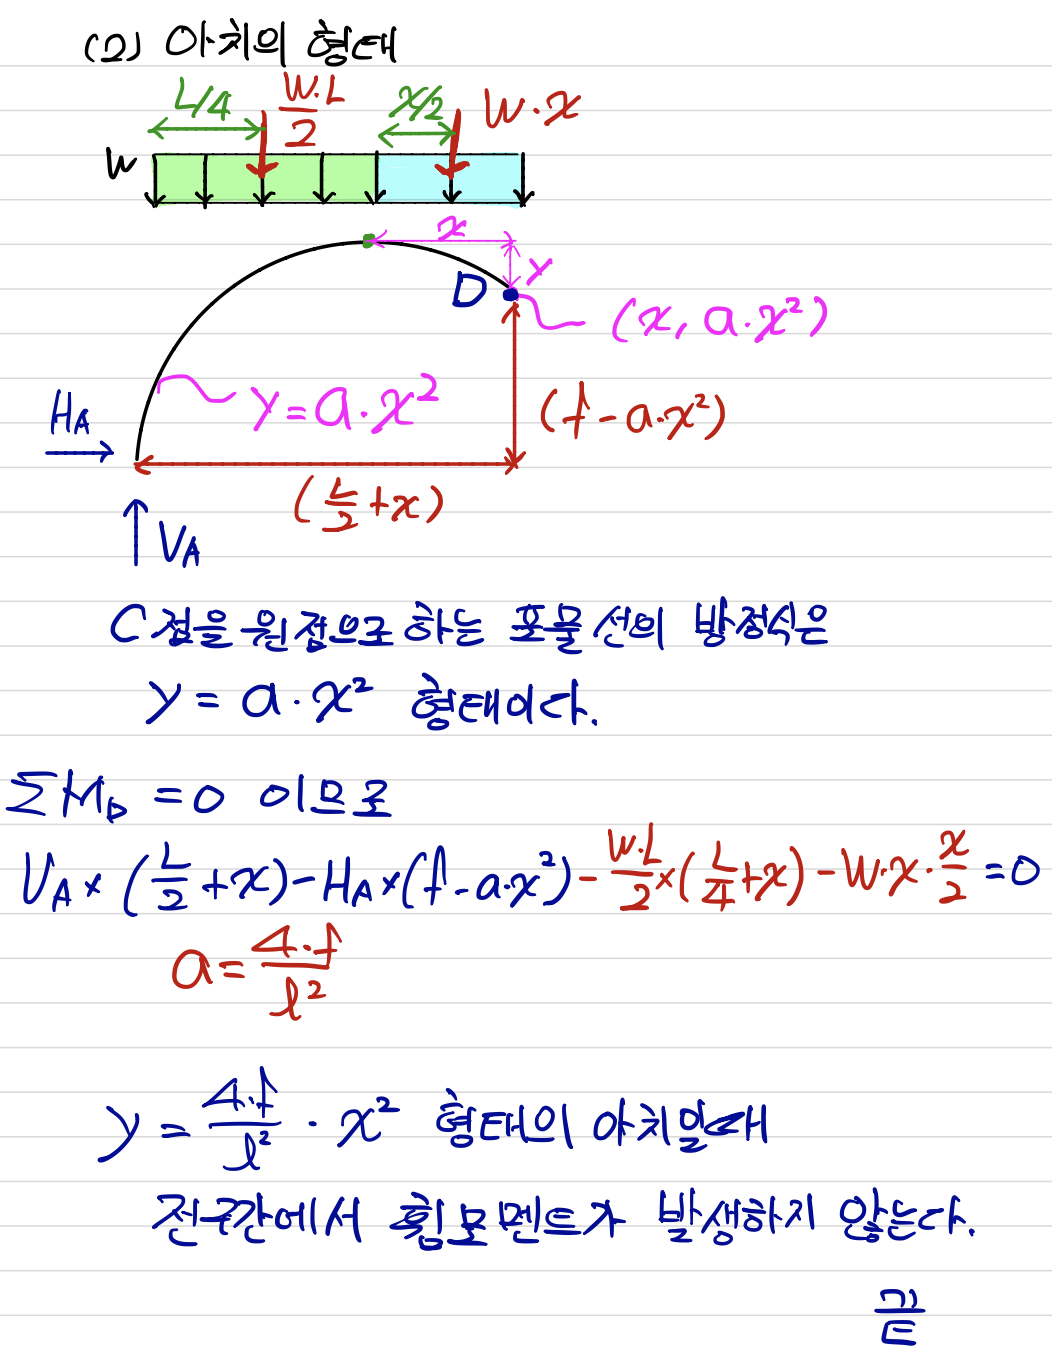 (2) 아치의 형태
L/4
W·L/2
x/2
W·x
w
x
y
D
(x, a·x²)
y=a·x²
(f-a·x²)
H_A
(L/2+x)
V_A
C점을 원점으로 하는 포물선의 방정식은
y = a·x² 형태이다.
ΣM_D = 0 이므로
V_A × (L/2 + x) - H_A × (f - a·x²) - W·L/2 × (L/4 + x) - W·x·x/2 = 0
a = 4·f/l²
y = 4·f/l² · x² 형태의 아치일때
전구간에서 휨모멘트가 발생하지 않는다.
끝